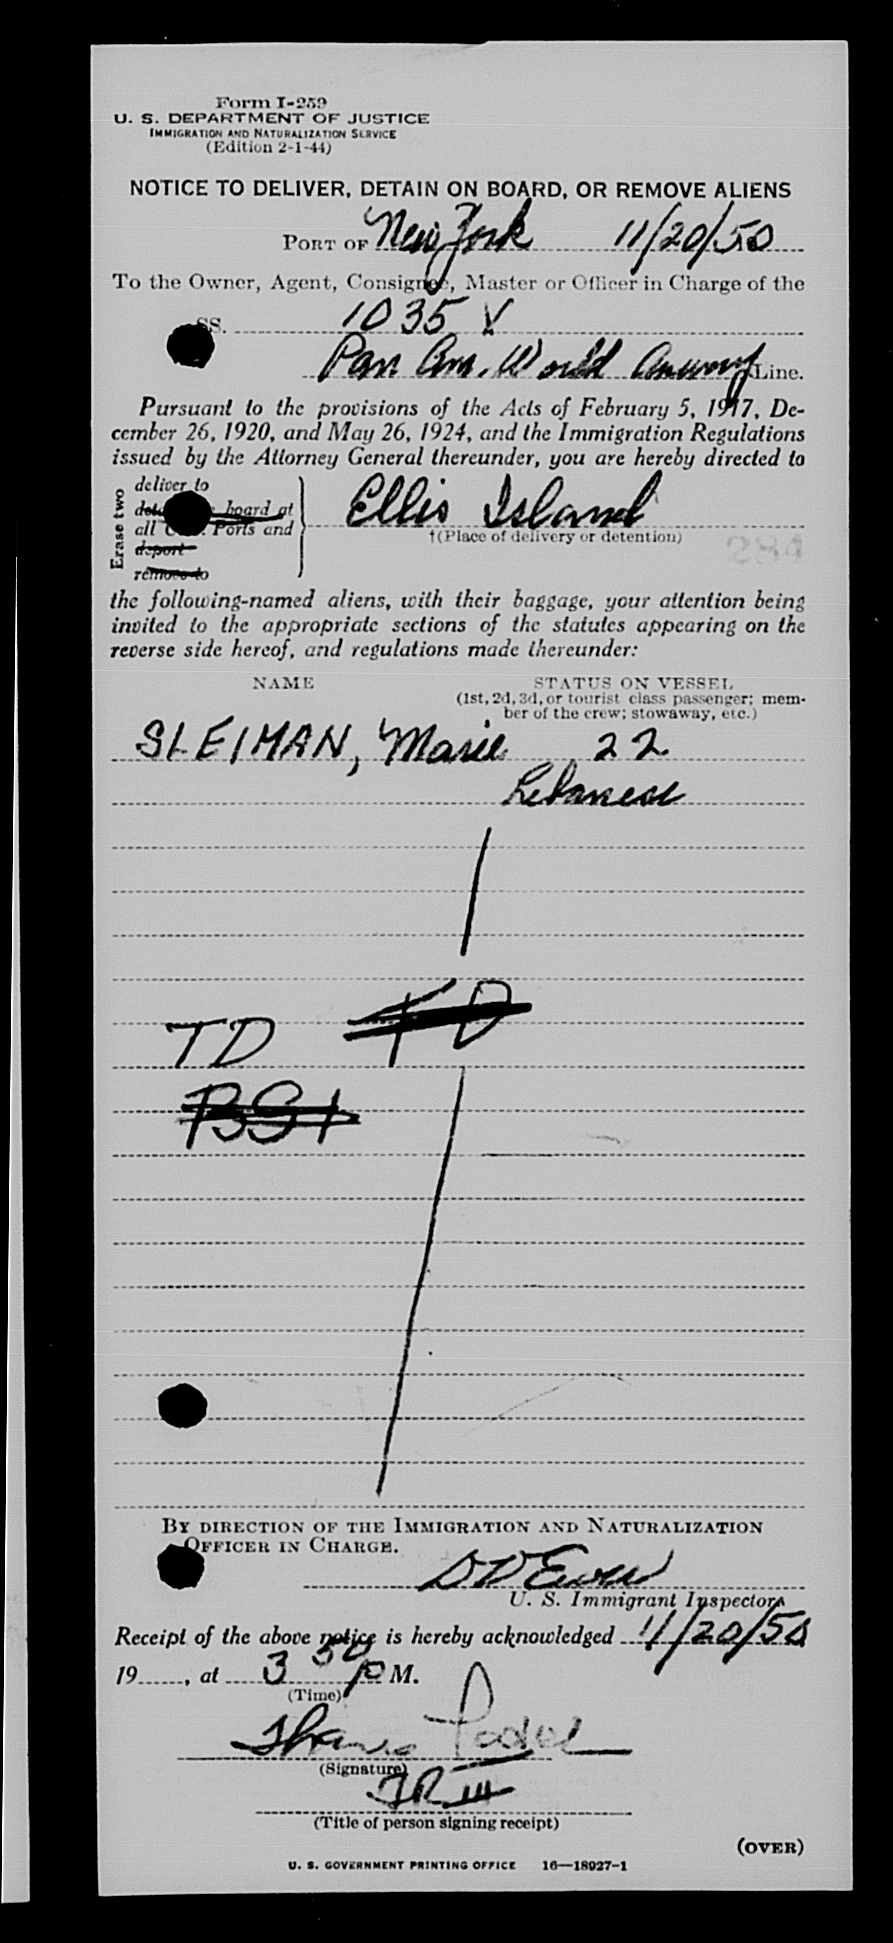 Form I-259
U. S. DEPARTMENT OF JUSTICE
IMMIGRATION AND NATURALIZATION SERVICE
(Edition 2-1-44)
NOTICE TO DELIVER, DETAIN ON BOARD, OR REMOVE ALIENS
PORT OF New York 11/20/50
To the Owner, Agent, Consignee, Master or Officer in Charge of the
SS. 1035 V
Pan Am. World Line.
Pursuant to the provisions of the Acts of February 5, 1917, De-
cember 26, 1920, and May 26, 1924, and the Immigration Regulations
issued by the Attorney General thereunder, you are hereby directed to
Erase two
deliver to
board at
all Ports and
deport
remove to
Ellis Island
†(Place of delivery or detention)
284
the following-named aliens, with their baggage, your attention being
invited to the appropriate sections of the statutes appearing on the
reverse side hereof, and regulations made thereunder:
NAME STATUS ON VESSEL
(1st, 2d, 3d, or tourist class passenger; mem-
ber of the crew; stowaway, etc.)
SLEIMAN, Marie 22
Lebanese
TD TD
BSI
BY DIRECTION OF THE IMMIGRATION AND NATURALIZATION
OFFICER IN CHARGE.
U. S. Immigrant Inspector
Receipt of the above notice is hereby acknowledged 11/20/50
19......, at 3 50 P M.
(Time)
(Signature)
TR III
(Title of person signing receipt)
(OVER)
U. S. GOVERNMENT PRINTING OFFICE 16—18927-1